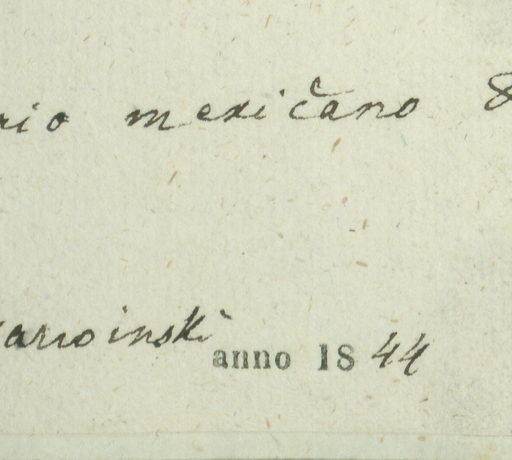 rio mexičano 8
Karwinski
anno 1844